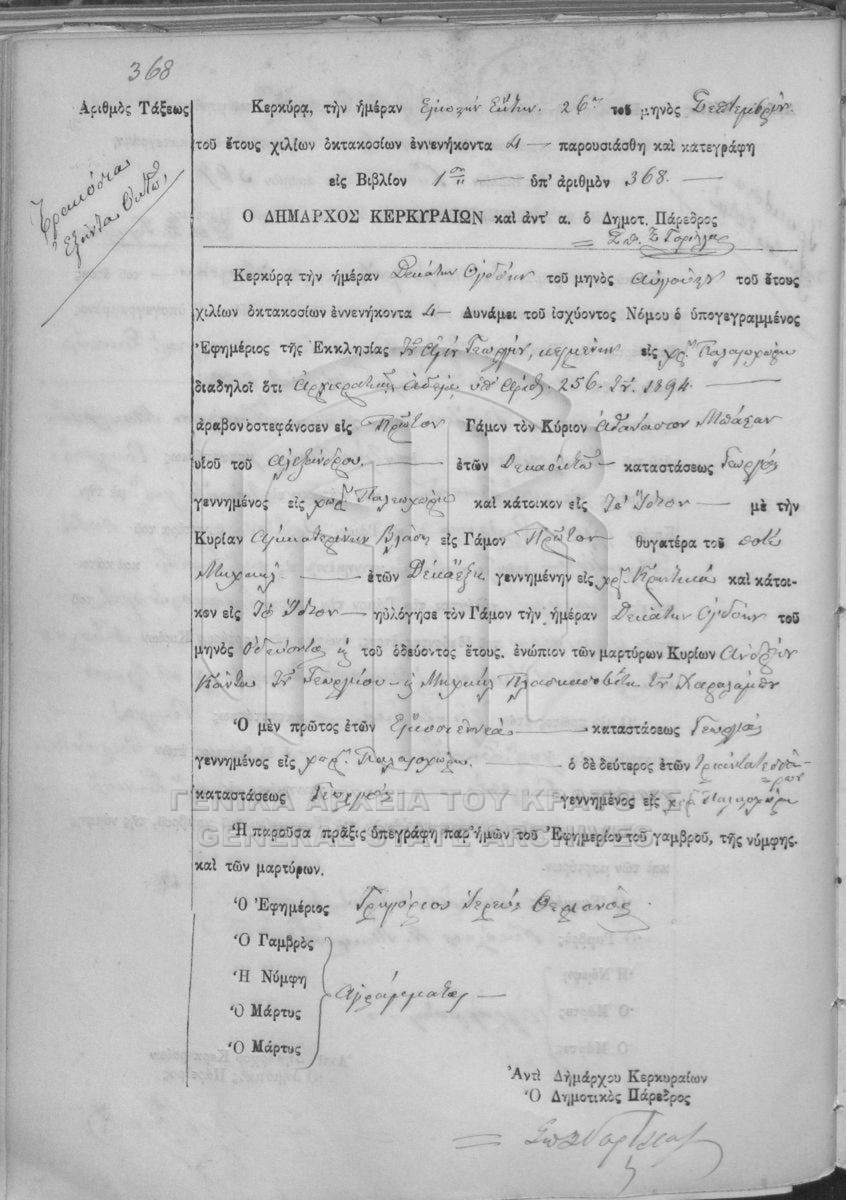 368
Ἀριθμὸς Τάξεως
Τριακόσια
Ἑξῆντα Ὀκτὼ
Κερκύρᾳ, τὴν ἡμέραν Εἰκοστὴν Ἕκτην 26ην τοῦ μηνὸς Σεπτεμβρίου
τοῦ ἔτους χιλίων ὀκτακοσίων ἐννενήκοντα 4 — παρουσιάσθη καὶ κατεγράφη
εἰς Βιβλίον 1ον — ὑπ' ἀριθμὸν 368. —
Ο ΔΗΜΑΡΧΟΣ ΚΕΡΚΥΡΑΙΩΝ καὶ ἀντ' α. ὁ Δημοτ. Πάρεδρος
Κερκύρᾳ τὴν ἡμέραν Δεκάτην Ὀγδόην τοῦ μηνὸς Αὐγούστου τοῦ ἔτους
χιλίων ὀκτακοσίων ἐννενήκοντα 4 — Δυνάμει τοῦ ἰσχύοντος Νόμου ὁ ὑπογεγραμμένος
Ἐφημέριος τῆς Ἐκκλησίας τοῦ Ἁγίου Γεωργίου, κειμένην εἰς χρ. Παλαιοχώρι
διαδηλοῖ ὅτι Ἀρχιερατικῇ Ἀδείᾳ ὑπ' Ἀριθ. 256. 1894. —
ἀραβονοστεφάνοσεν εἰς Πρῶτον Γάμον τὸν Κύριον Ἀθανάσιον Μπάζαν
υἱοῦ τοῦ Ἀλεξάνδρου. — ἐτῶν Δεκαοκτὼ — καταστάσεως Γεωργὸς
γεννημένος εἰς χωρ. Παλεοχώρι καὶ κάτοικον εἰς Τὸ Ἴδιον — μὲ τὴν
Κυρίαν Αἰκατερίνην Βλάση εἰς Γάμον Πρῶτον θυγατέρα τοῦ ποτὲ
Μιχαὴλ — ἐτῶν Δεκαέξη γεννημένην εἰς χρ. Κρητικά καὶ κάτοι-
κον εἰς Τὸ Ἴδιον — ηὐλόγησε τὸν Γάμον τὴν ἡμέραν Δεκάτην Ὀγδόην τοῦ
μηνὸς Ὁδεύοντος τοῦ ὁδεύοντος ἔτους. ἐνώπιον τῶν μαρτύρων Κυρίων Ἀνδρέου
Κάντα τοῦ Γεωργίου — Μιχαὴλ τοῦ Χαραλάμπη
Ὁ μὲν πρῶτος ἐτῶν Εἰκοσιεννέα — καταστάσεως Γεωργὸς
γεννημένος εἰς χωρ. Παλαιοχώρι. — ὁ δὲ δεύτερος ἐτῶν τριάντατεσσά-
ρων
καταστάσεως Γεωργὸς γεννημένος εἰς χωρ. Παλαιοχώρι
ΓΕΝΙΚΑ ΑΡΧΕΙΑ ΤΟΥ ΚΡΑΤΟΥΣ
GENERAL STATE ARCHIVES
Ἡ παροῦσα πρᾶξις ὑπεγράφη παρ' ἡμῶν τοῦ Ἐφημερίου τοῦ γαμβροῦ, τῆς νύμφης.
καὶ τῶν μαρτύρων.
Ὁ Ἐφημέριος Γρηγόριος Ἱερεὺς Θερμανός.
Ὁ Γαμβρὸς
Ἡ Νύμφη
Ἀγράμματοι —
Ὁ Μάρτυς
Ὁ Μάρτυς
Ἀντὶ Δημάρχου Κερκυραίων
Ὁ Δημοτικὸς Πάρεδρος